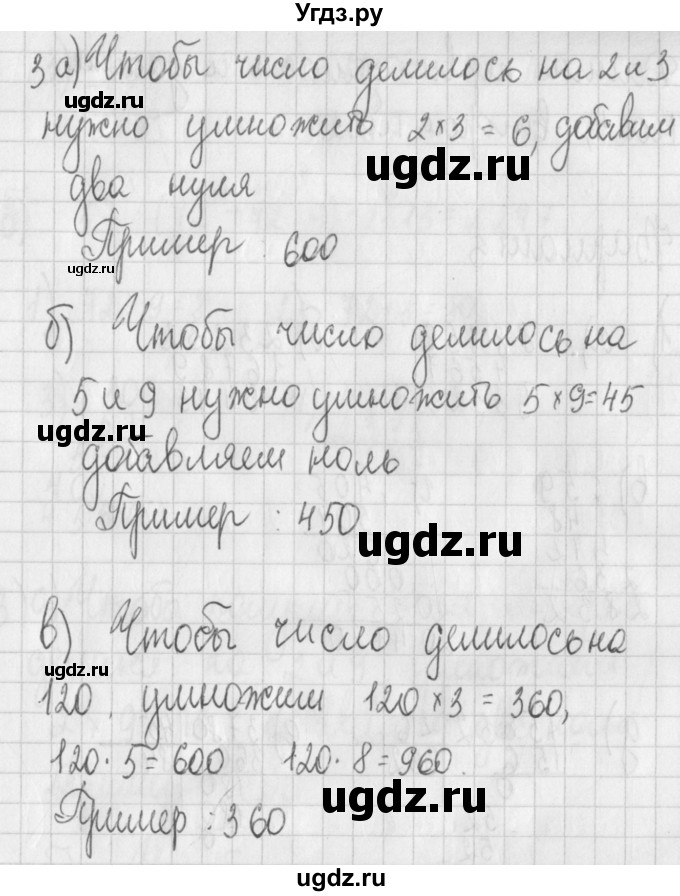 Угдз.ру
3 а) Чтобы число делилось на 2 и 3
ugdz.ru
нужно умножить 2 × 3 = 6, добавим
ugdz.ru
два нуля
Пример : 600
ugdz.ru
б) Чтобы число делилось на
5 и 9 нужно умножить 5 × 9 = 45
ugdz.ru
добавляем ноль
Пример : 450
ugdz.ru
в) Чтобы число делилось на
ugdz.ru
120, умножим 120 × 3 = 360,
120 · 5 = 600 120 · 8 = 960.
Пример : 360
ugdz.ru
ugdz.ru